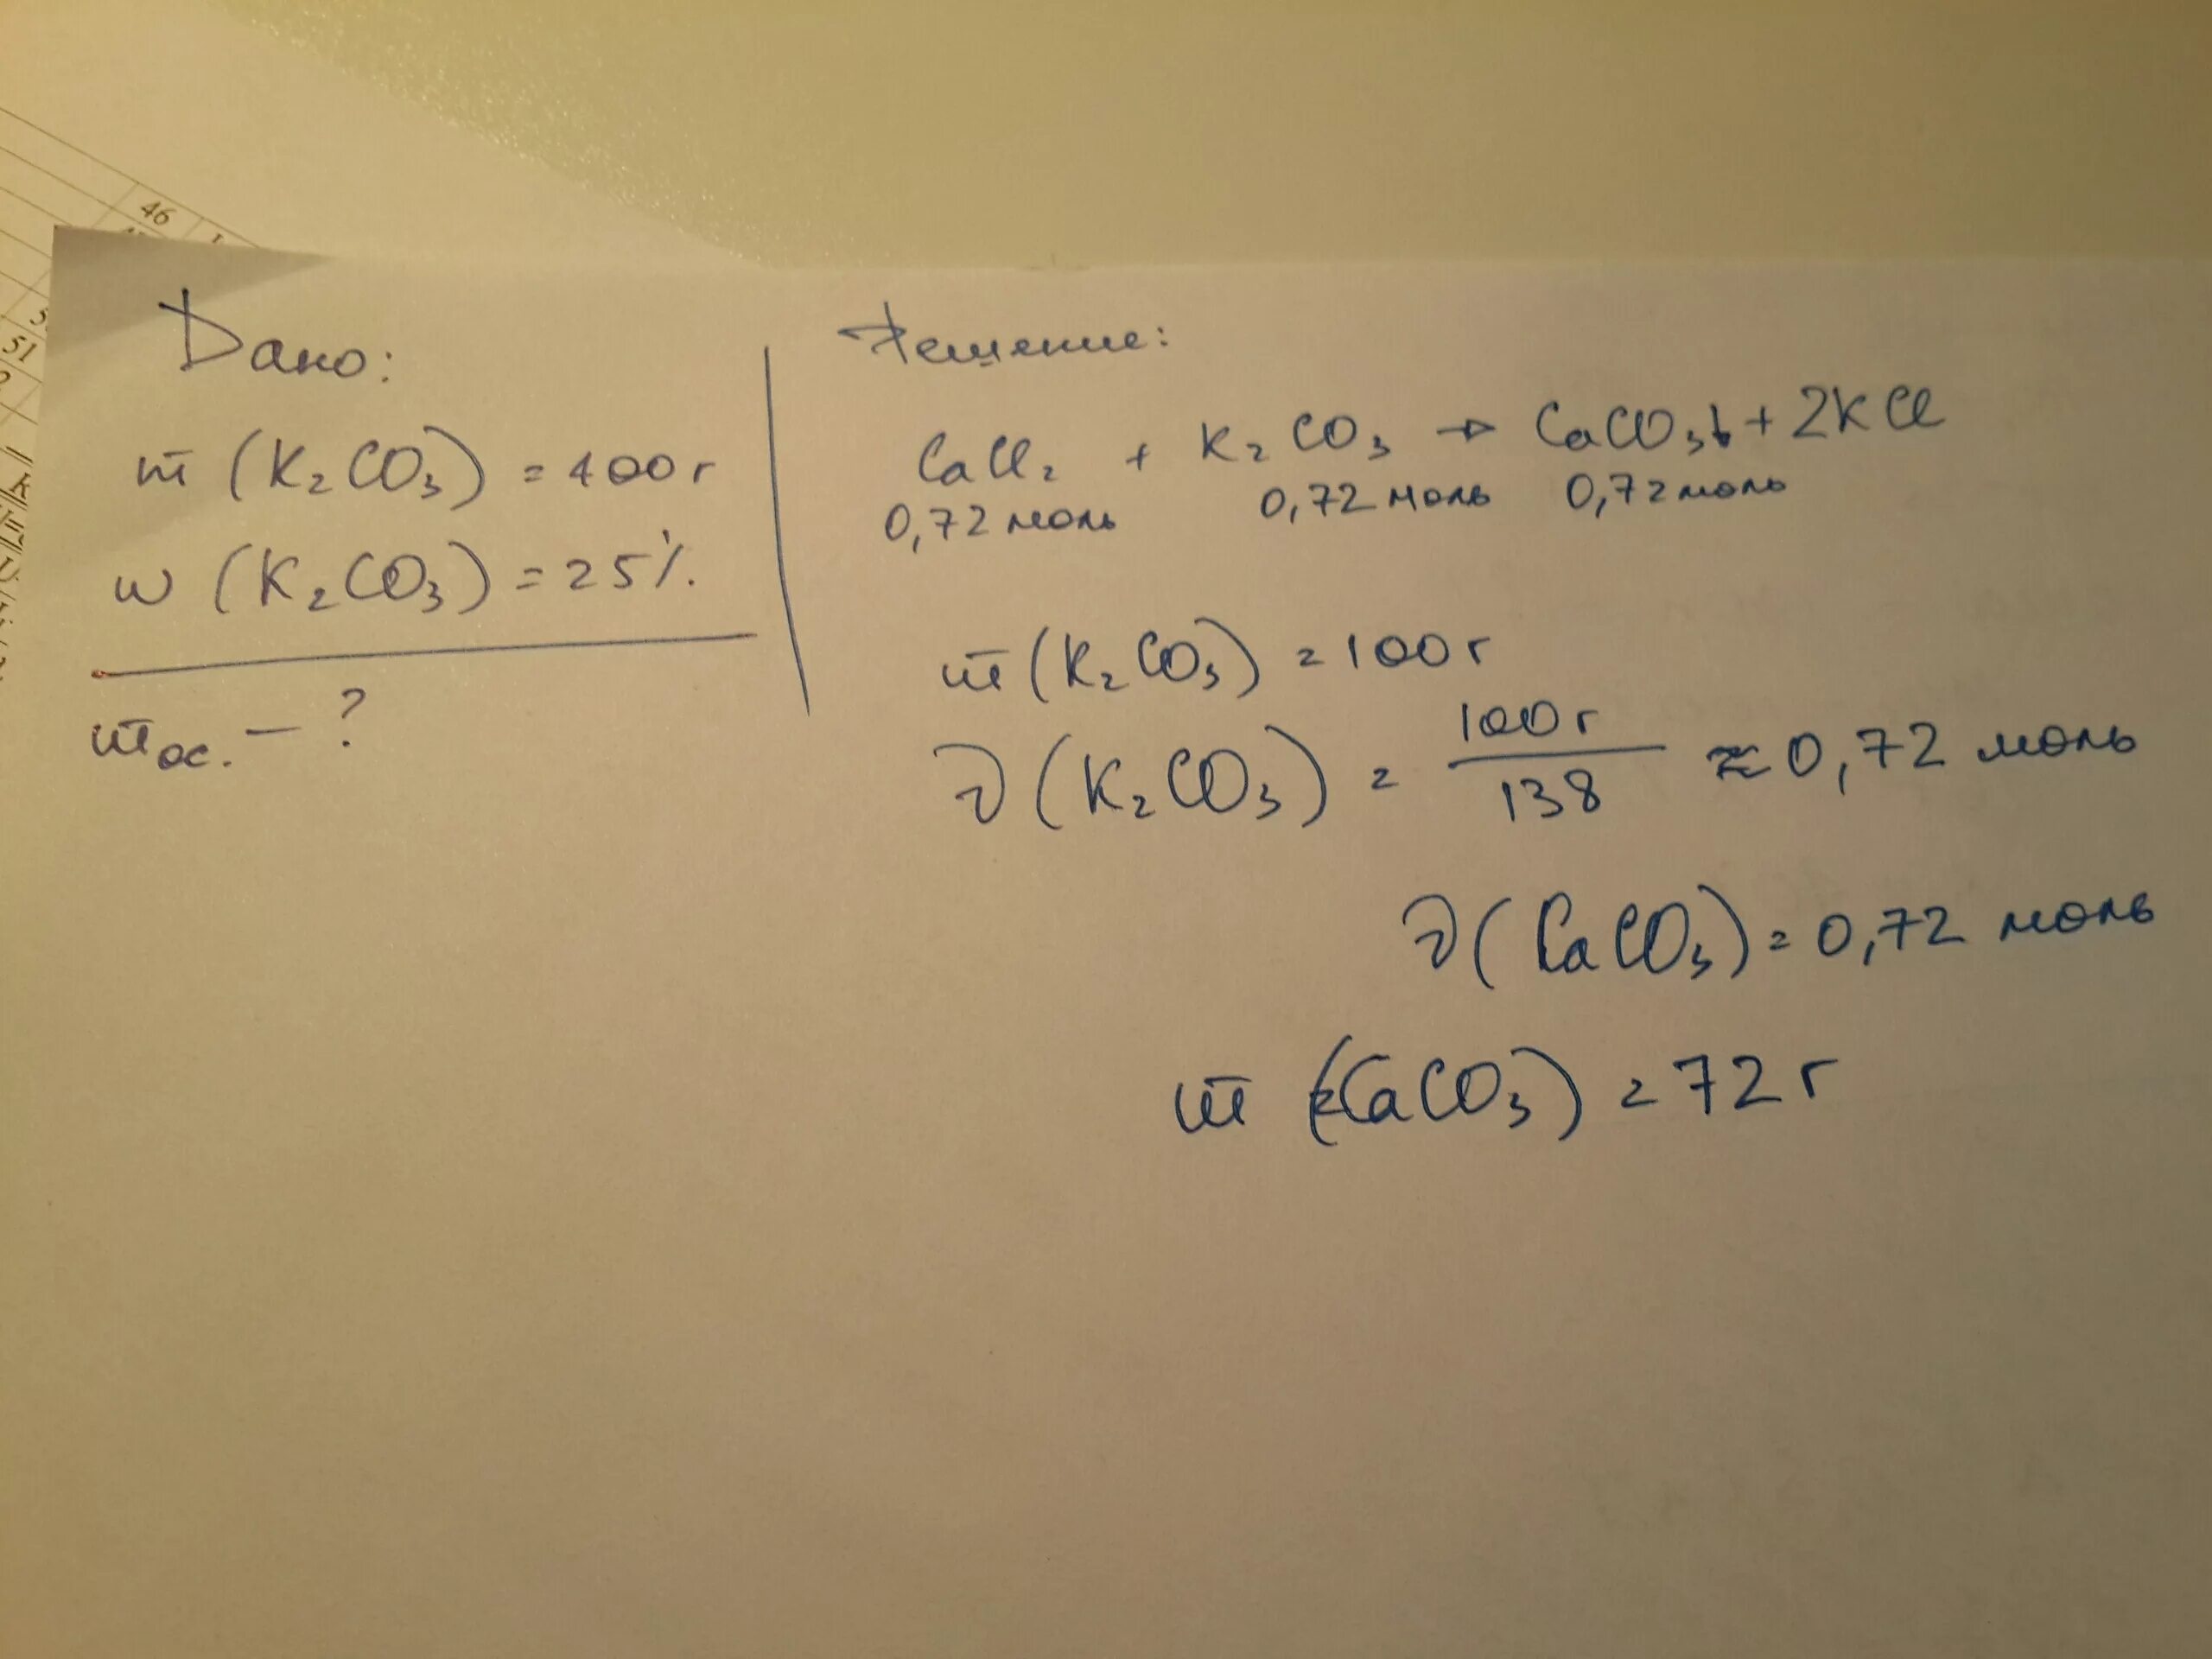 46
51
Дано:
m (K₂CO₃) = 400 г
w (K₂CO₃) = 25 %.
mос. — ?
Решение:
CaCl₂ + K₂CO₃ → CaCO₃↓ + 2KCl
0,72 моль 0,72 моль 0,72 моль
m (K₂CO₃) = 100 г
ν (K₂CO₃) = 100 г / 138 ≈ 0,72 моль
ν (CaCO₃) = 0,72 моль
m (CaCO₃) = 72 г